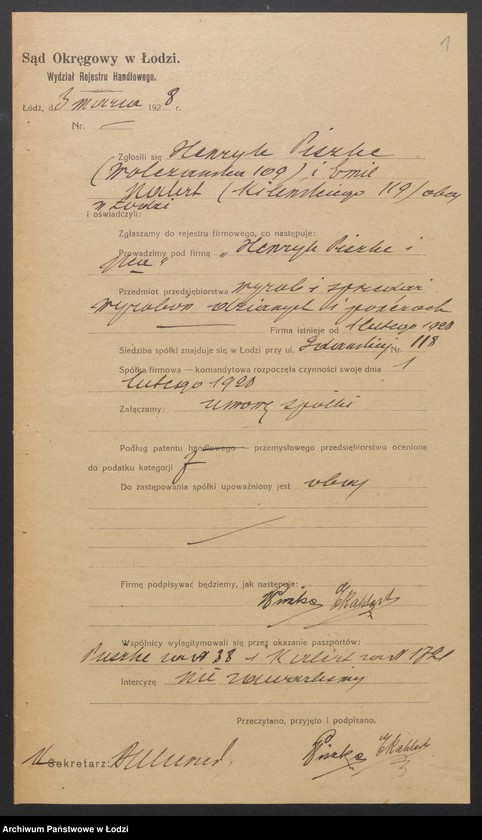 1
Sąd Okręgowy w Łodzi.
Wydział Rejestru Handlowego.
Łódź, d. 3 marca 1928 r.
Nr. —
Zgłosili się Henryk Piszke
(Wólczańska 109) i Emil
Kahlert (Kilińskiego 119) obaj
w Łodzi
i oświadczyli:
Zgłaszamy do rejestru firmowego, co następuje:
Prowadzimy pod firmą „Henryk Piszke i
S-ka"
Przedmiot przedsiębiorstwa wyrób i sprzedaż
wyrobów dzianych i pończoch
Firma istnieje od 1 lutego 1928
Siedziba spółki znajduje się w Łodzi przy ul. Gdańskiej Nr. 118
Spółka firmowa — komandytowa rozpoczęła czynności swoje dnia 1
lutego 1928
Załączamy: umowę spółki
Podług patentu handlowego — przemysłowego przedsiębiorstwo ocenione
do podatku kategorji
Do zastępowania spółki upoważniony jest obaj
Firmę podpisywać będziemy, jak następuje:
Piszke EKahlert
Wspólnicy wylegitymowali się przez okazanie paszportów:
Piszke za N 38 i Kahlert za N
Intercyzę nie zawarliśmy
Przeczytano, przyjęto i podpisano.
Sekretarz:
Piszke EKahlert
Archiwum Państwowe w Łodzi